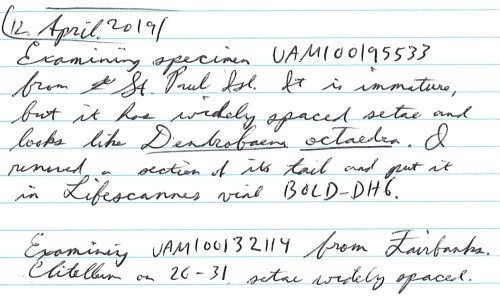 (12. April. 2019/
Examining specimen UAM100195533
from St. Paul Isl. It is immature,
but it has widely spaced setae and
looks like Dendrobaena octaedra. I
removed a section of its tail and put it
in Lifescanner vial BOLD-DH6.
Examining UAM100132114 from Fairbanks.
Clitellum on 26-31, setae widely spaced.